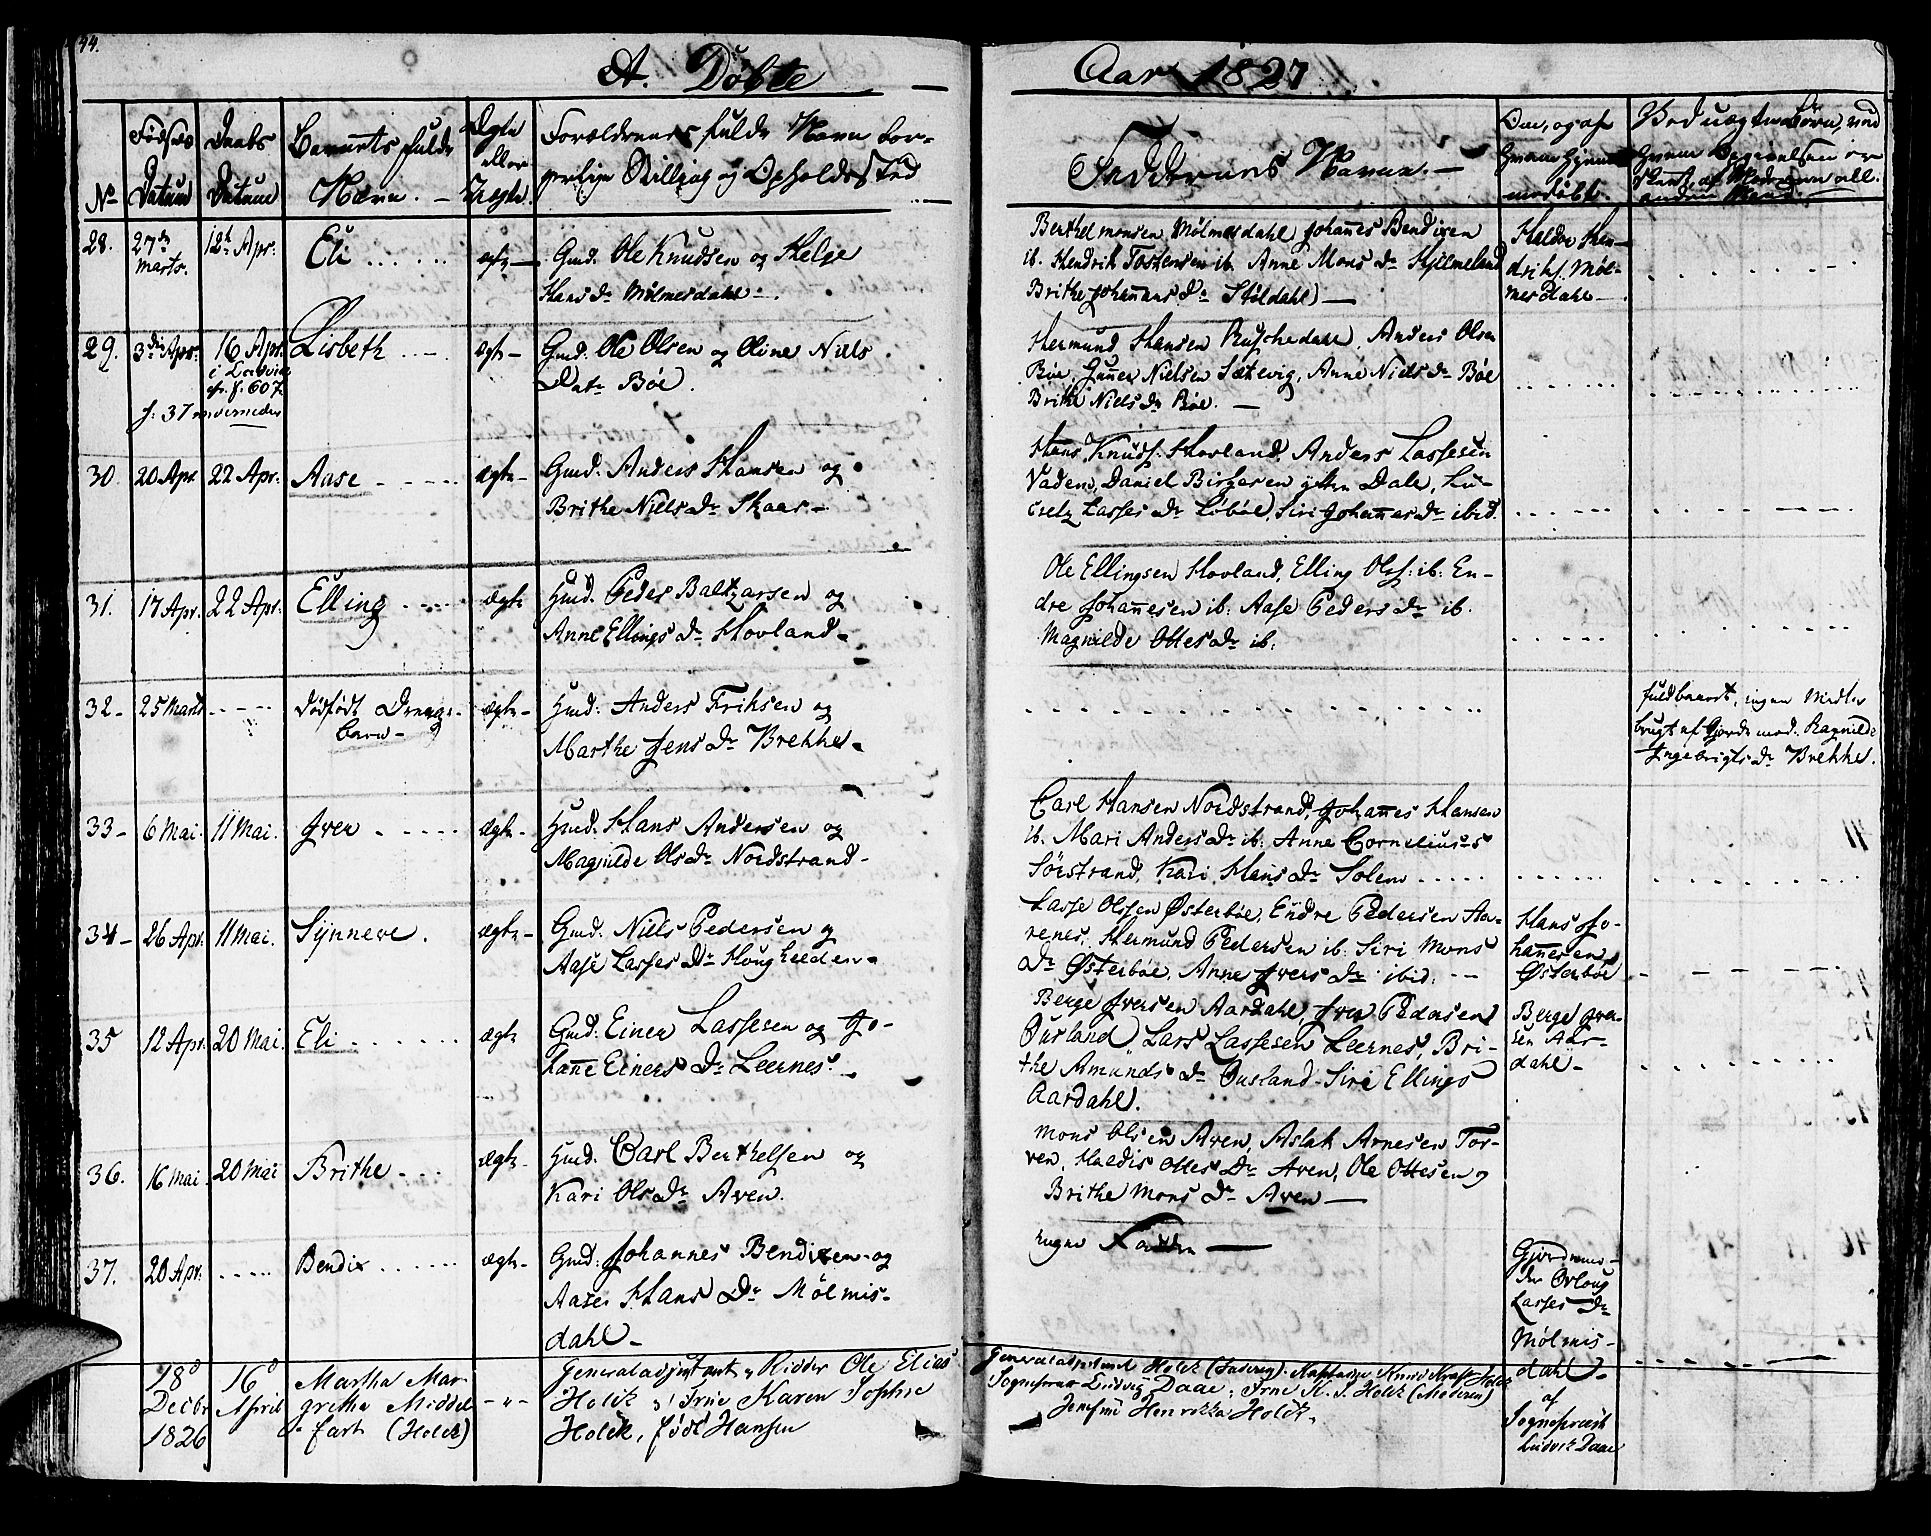 44.
A. Døbte
Aar 1827
No
Fødsels Datum
Daabs Datum
Barnets fulde Navn.
Ægte eller Uægte.
Forældrenes fulde Navn bor-
gerlige Stilling og Opholdssted
Faddernes Navne.
Om, og af
hvem Hjemmedøbt.
Ved uægte Børn, ved
28.
27de Marts.
12te Apr:
Eli
ægte
Gmd. Ole Knudsen og Helge
Hans Dr. Mølmesdahl.
Berthel Monsen Mølmesdahl Johannes Bendixen
ib. Hendrik Tostensen ib. Anne Mons Dr. Hjilmeland
Brithe Johannes Dr. Støldahl
Heldor Hen-
driks. Møl-
mesdahl
29.
3die Apr:
16 Apr.
i Ladvig
cfr. p. 607.
f: 37 nedenunder
Lisbeth
ægte
Gmd. Ole Olsen og Oline Niels
Datr. Bøe.
Hermund Hansen Rutschedahl, Anders Olsen
Bøe, Gunner Nielsen Sætevig, Anne Niels Dr. Bøe
Brithe Niels Dr. Bøe.
30.
20 Apr.
22 Apr:
Aase
ægte
Gmd. Anders Hansen og
Brithe Niels Dr. Skaar
Hans Knuds. Hovland, Anders Lassesen
Vadem, Daniel Birgesen ytre Dale, Lu-
cretz Lasses Dr. Libøe, Siri Johannes Dr. ibid.
31.
17 Apr.
22 Apr:
Elling
ægte
Gmd. Peder Baltzarsen og
Anne Ellings Dr. Hovland
Ole Ellingsen Hovland, Elling Ols: ib: En-
dre Johannesen ib: Aase Peders Dr. ib.
Magnilde Ottes Dr. ib:
32
25 Marts
Dødfødt Drenge-
barn
ægte
Gmd: Anders Eriksen og
Marthe Jens Dr. Brekke
fuldbaaret, ingen Midler
brugt af Gjordemod. Ragnilde
Ingebrigts Dr. Brekke.
33
6 Mai.
11 Mai.
Iver
ægte
Gmd. Hans Andersen og
Magnilde Ols Dr. Nordstrand
Carl Hansen Nordstrand, Johannes Hansen
ib. Mari Anders Dr. ib: Anne Corneliuses
Sørstrand, Kari Hans Dr. Solem
34
26 Apr.
11 Mai.
Synneve.
ægte
Gmd. Niels Pedersen og
Aase Lasses Dr.
Lasse Olsen Østerbøe, Endre Pedersen Aa-
renes, Hermund Pedersen ib: Siri Mons
Dr. Østerbøe, Anne Ivers Dr. ibid.
Hans Jo-
hannesen
Østerbøe
35
12 Apr.
20 Mai.
Eli
ægte
Gmd: Einer Lassesen og Jo-
hanne Einers Dr. Leernes
Berge Iversen Aardahl, Iver Pedersen
Ousland, Lars Lassesen Leernes, Bri-
the Amunds Dr. Ousland, Siri Ellings
Aardahl.
Berge Iver-
sen Aar-
dahl
36.
16 Mai
20 Mai
Brithe
ægte
Gmd. Carl Berthelsen og
Kari Ols Dr. Aven.
Mons Olsen Aven, Aslak Arnesen Tor-
ven, Haldis Ottes Dr. Aven, Ole Ottesen og
Brithe Mons Dr. Aven
37.
20 Apr.
Bendix
ægte
Gmd: Johannes Bendixen og
Aase Hans Dr. Mølmis-
dahl
ingen Faddere
Gjordemo-
der Orloug
Lasses Dr.
Mølmis-
dahl
18de
Decbr
1826
16de
April
Martha Mar-
gretha Middel-
fart (Holck)
Generaladjutant, Ridder Ole Elias
Holck, Frue Karen Sophie
Holck, født Hansen
Generaladjutant Holck (Faderen). Kaptain Knud Kraft Holck
Sogneprest Ludvig Daae, Frue K. S. Holck (Moderen)
Jomfru Henrikka Holck.
af
Sogneprest
Ludvig Daae